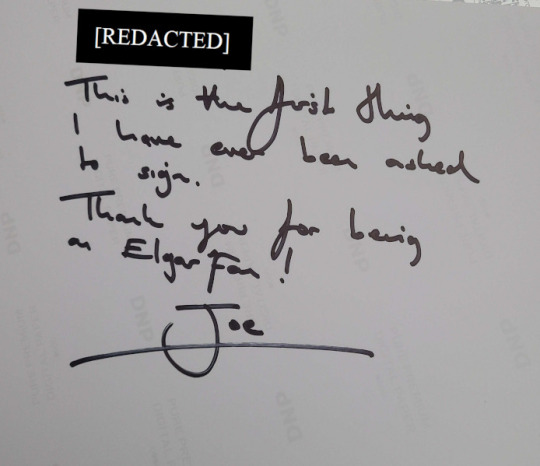 [REDACTED]
This is the first thing
I have ever been asked
to sign.
Thank you for being
an Elgar Fan!
Joe
DNP
DNP
DNP
DNP
DNP